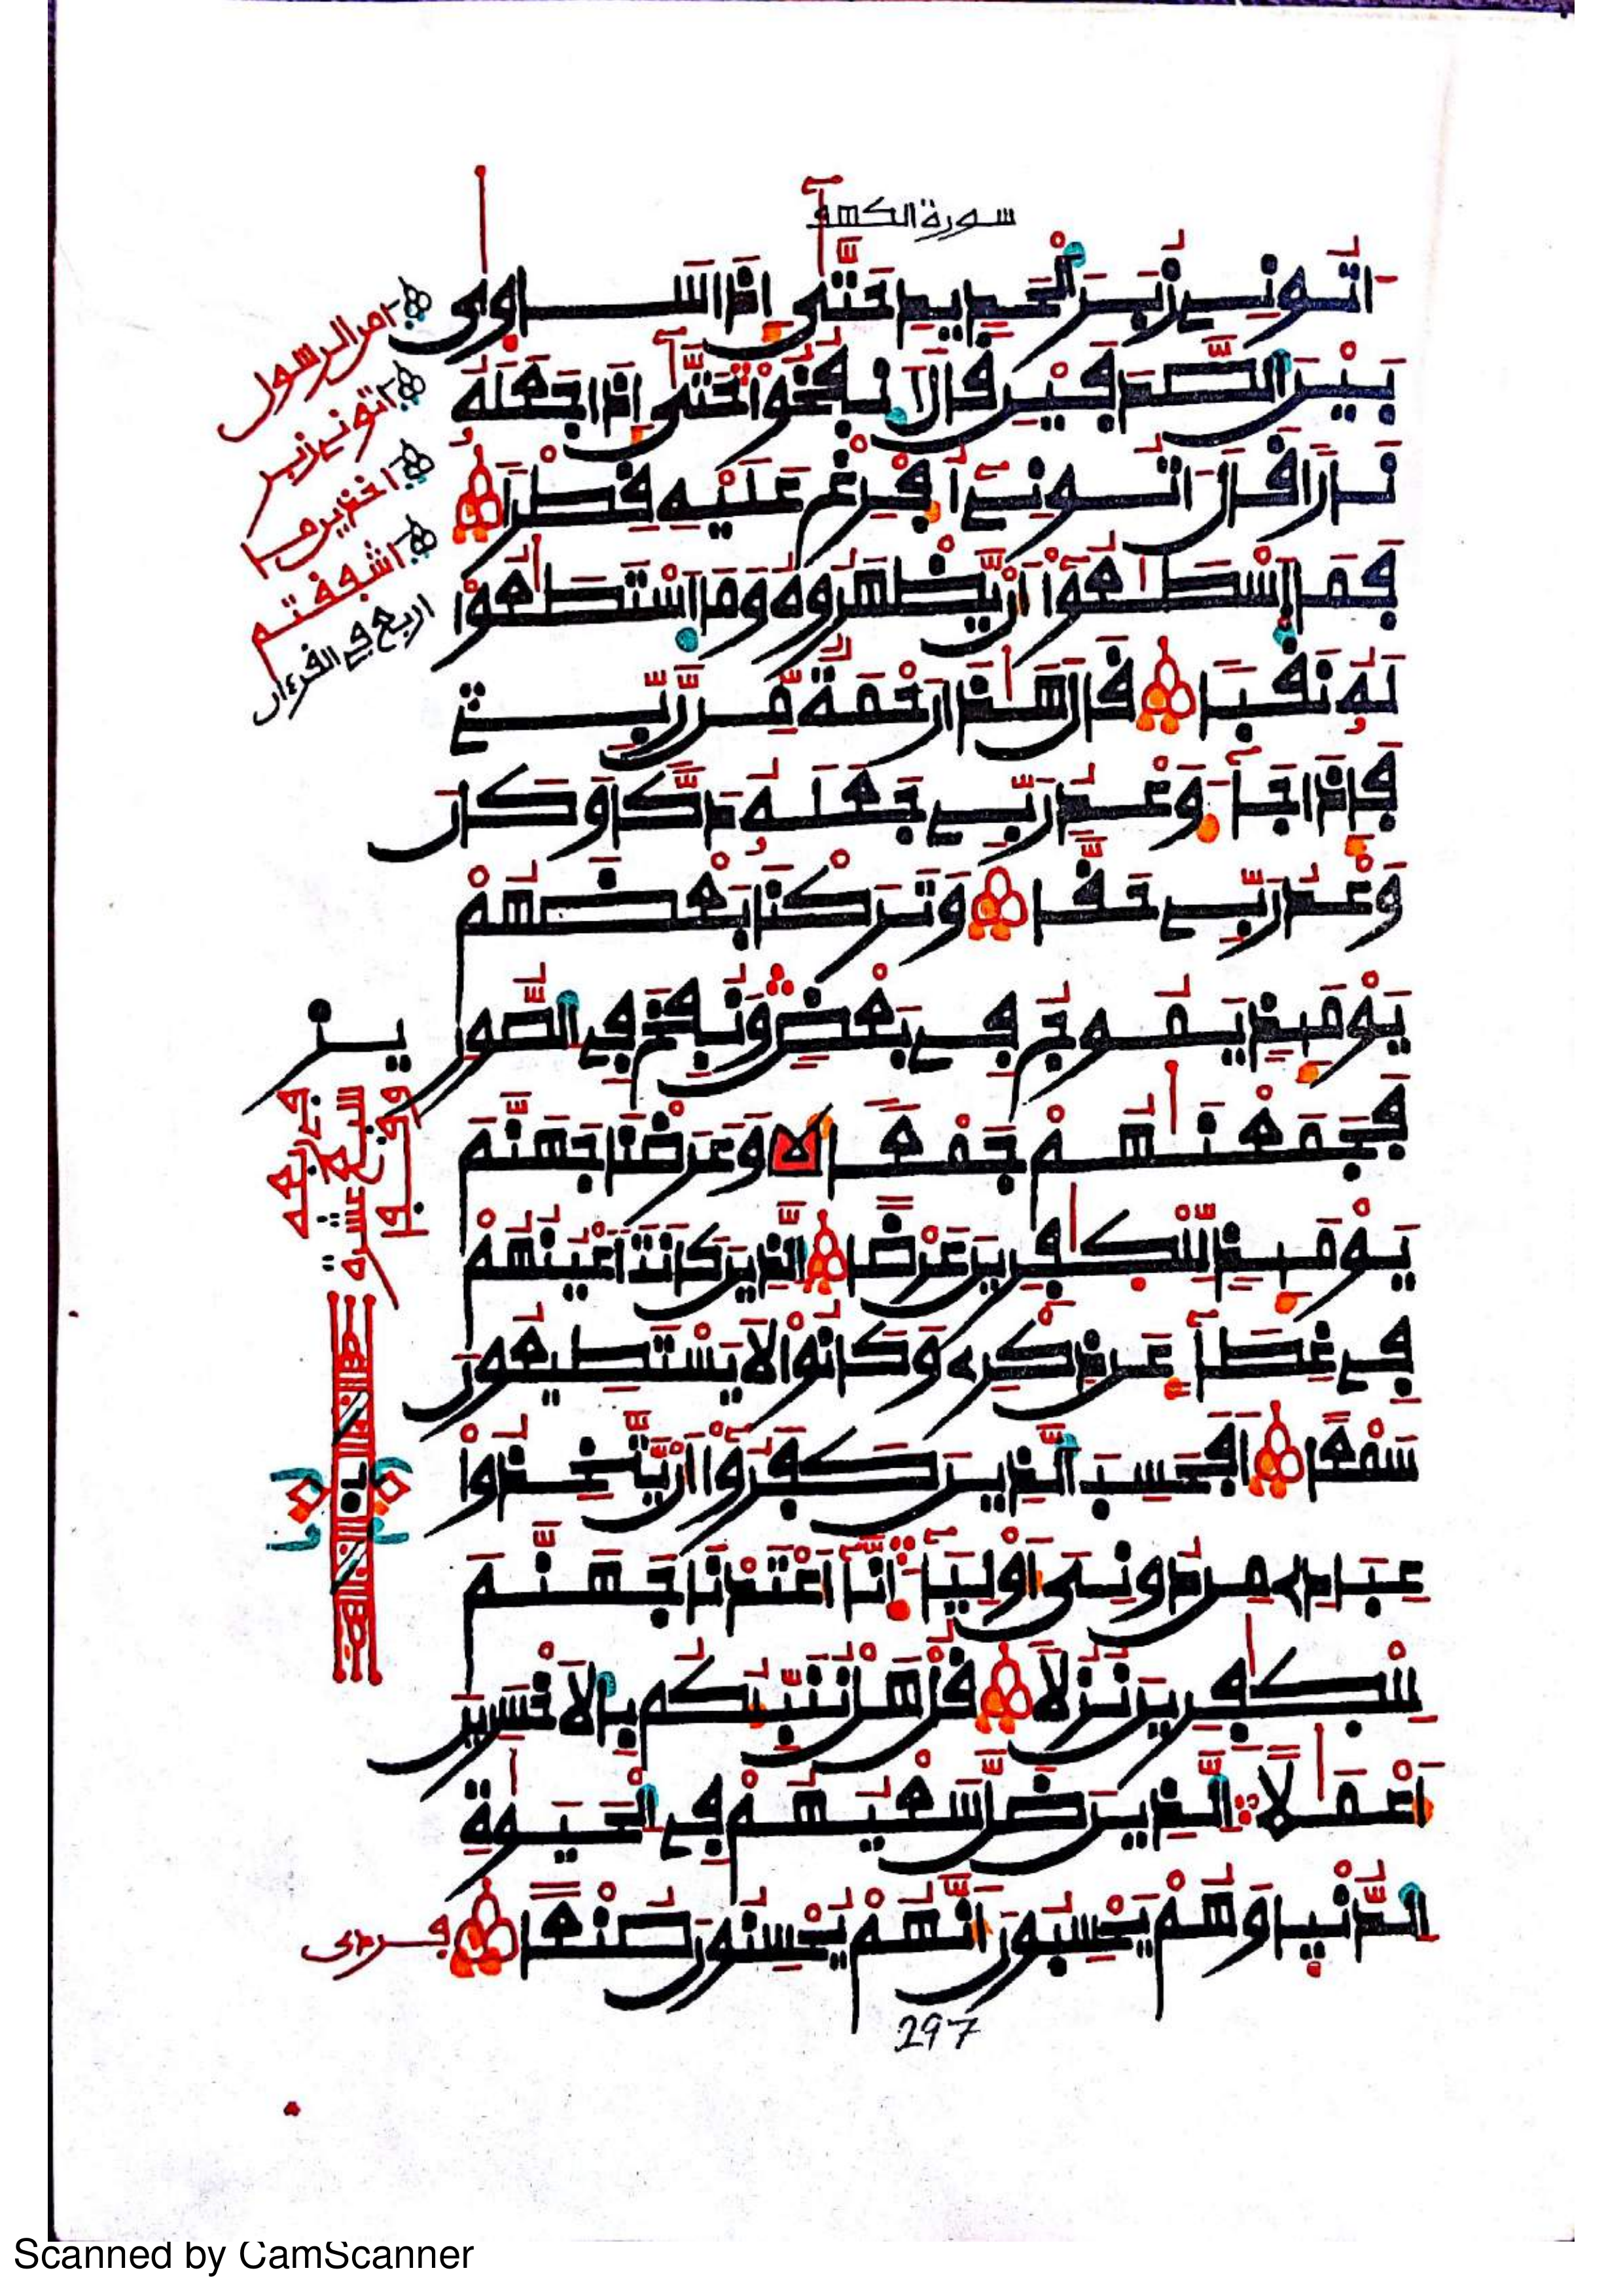 سورة الكهف
اتُونِي زُبَرَ الْحَدِيدِ حَتَّى إِذَا سَاوِى
بَيْنَ الصَّدَفَيْنِ قَالَ انفُخُواْ حَتَّى إِذَا جَعَلَهُ
نَارًا قَالَ اتُونِي أُفْرِغْ عَلَيْهِ قِطْرًا
فَمَا اسْطَاعُوا أَنْ يَّظْهَرُوهُ وَمَا اسْتَطَاعُوا
لَهُ نَقْبًا قَالَ هَاذَا رَحْمَةٌ مِّن رَّبِّي
فَإِذَا جَآءَ وَعْدُ رَبِّي جَعَلَهُ دَكًّا وَكَانَ
وَعْدُ رَبِّي حَقًّا وَتَرَكْنَا بَعْضَهُمْ
يَوْمَئِذٍ يَمُوجُ فِي بَعْضٍ وَنُفِخَ فِي الصُّورِ
فَجَمَعْنَاهُمْ جَمْعًا وَعَرَضْنَا جَهَنَّمَ
يَوْمَئِذٍ لِّلْكَافِرِينَ عَرْضًا الَّذِينَ كَانَتَ اَعْيُنُهُمْ
فِي غِطَآءٍ عَن ذِكْرِي وَكَانُوا لَا يَسْتَطِيعُونَ
سَمْعًا أَفَحَسِبَ الَّذِينَ كَفَرُوا أَنْ يَّتَّخِذُوا
عِبَادِي مِن دُونِي أَوْلِيَآءَ إِنَّآ أَعْتَدْنَا جَهَنَّمَ
لِلْكَافِرِينَ نُزُلًا قُلْ هَلْ نُنَبِّئُكُم بِالْأَخْسَرِينَ
أَعْمَالًا الَّذِينَ ضَلَّ سَعْيُهُمْ فِي الْحَيَوٰةِ
الدُّنْيَا وَهُمْ يَحْسِبُونَ أَنَّهُمْ يُحْسِنُونَ صُنْعًا
امن الرسول
اتوني زبر
اخنزير ما
اشفقتم
اربع في القرءان
297
Scanned by CamScanner